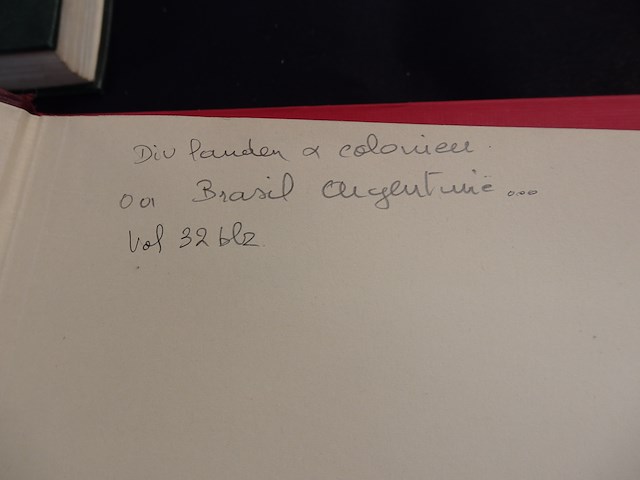 Div landen & colonieen.
oa Brasil Argentinië ...
Vol 32 blz.